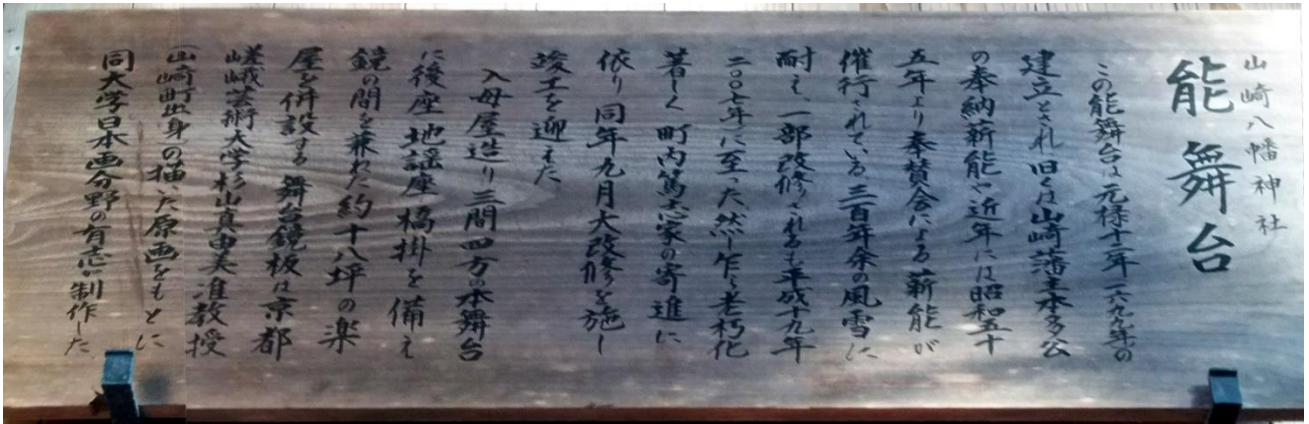 山崎八幡神社
能舞台
この能舞台は元禄十二年一六九九年の
建立とされ旧くは山崎藩主本多公
の奉納薪能や近年には昭和五十
五年より奉賛会による薪能が
催行されている三百年余の風雪に
耐え、一部改修されるも平成十九年
二〇〇七年に至った然し乍ら老朽化
著しく町内篤志家の寄進に
依り同年九月大改修を施し
竣工を迎えた
入母屋造り三間四方の本舞台
に後座地謡座橋掛を備え
鏡の間を兼ねた約十八坪の楽
屋を併設する舞台鏡板は京都
嵯峨芸術大学杉山真由美准教授
(山崎町出身)の描いた原画をもとに
同大学日本画分野の有志が制作した